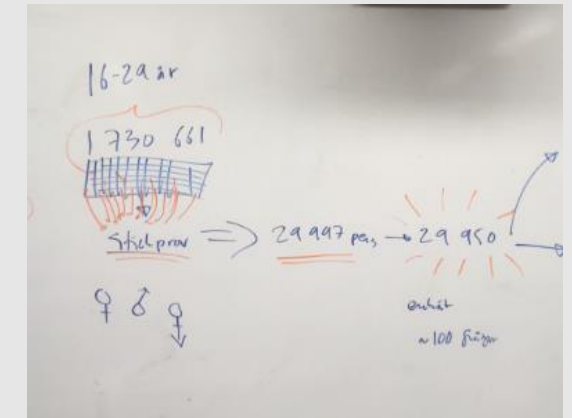 16-29 år
1 730 661
Stickprov => 29 997 pers → 29 950
enkät
~100 frågor